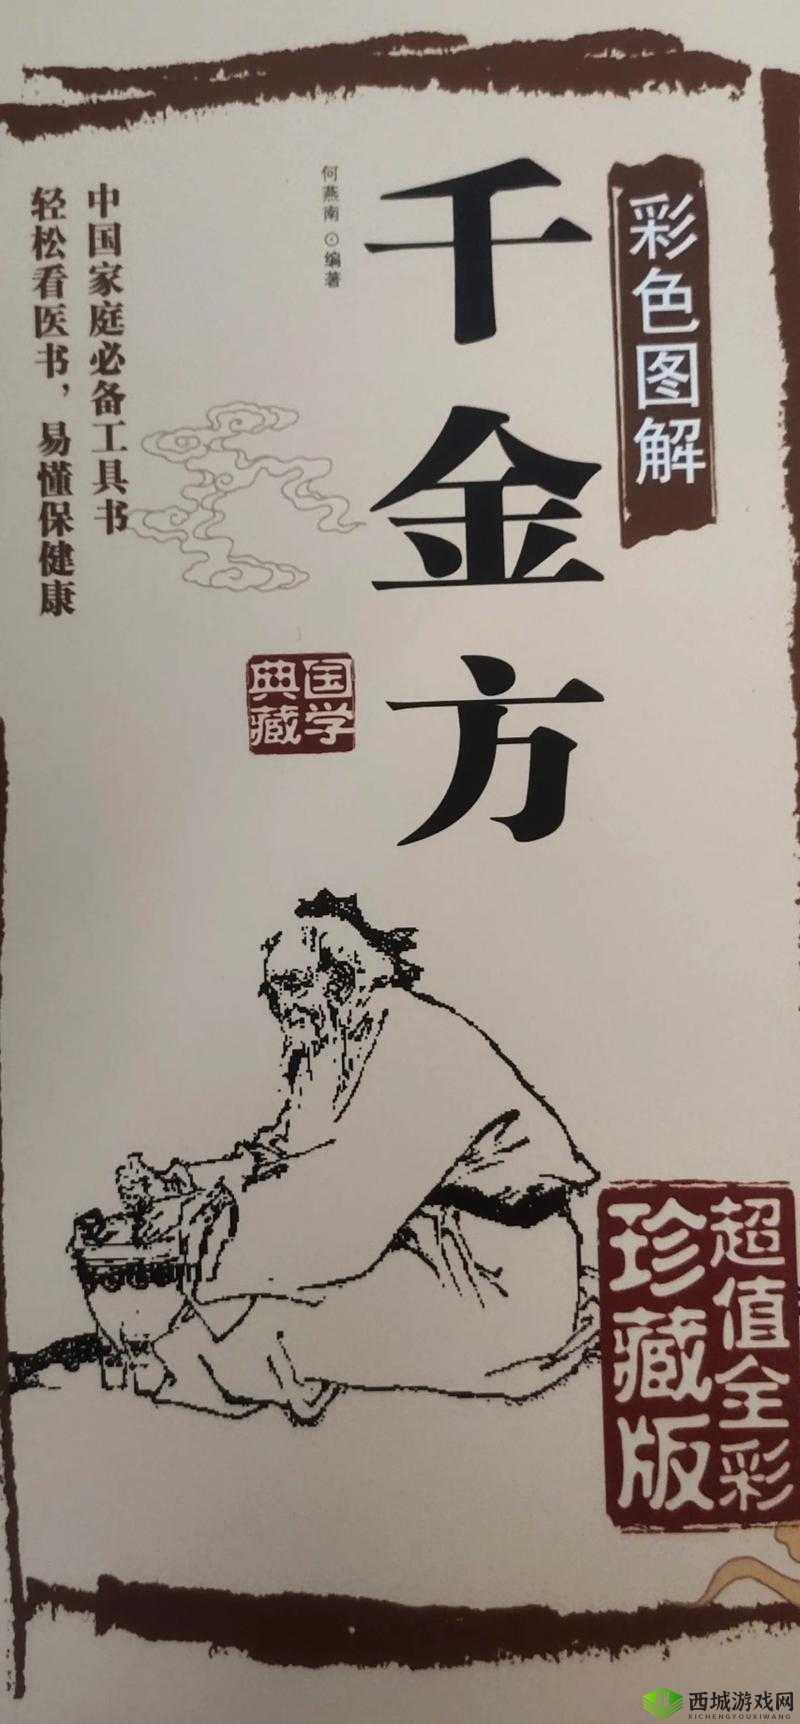 彩色图解
千金方
何燕南⊙编著
中国家庭必备工具书
轻松看医书，易懂保健康
国学
典藏
超值全彩
珍藏版
西城游戏网
XICHENGYOUXIWANG